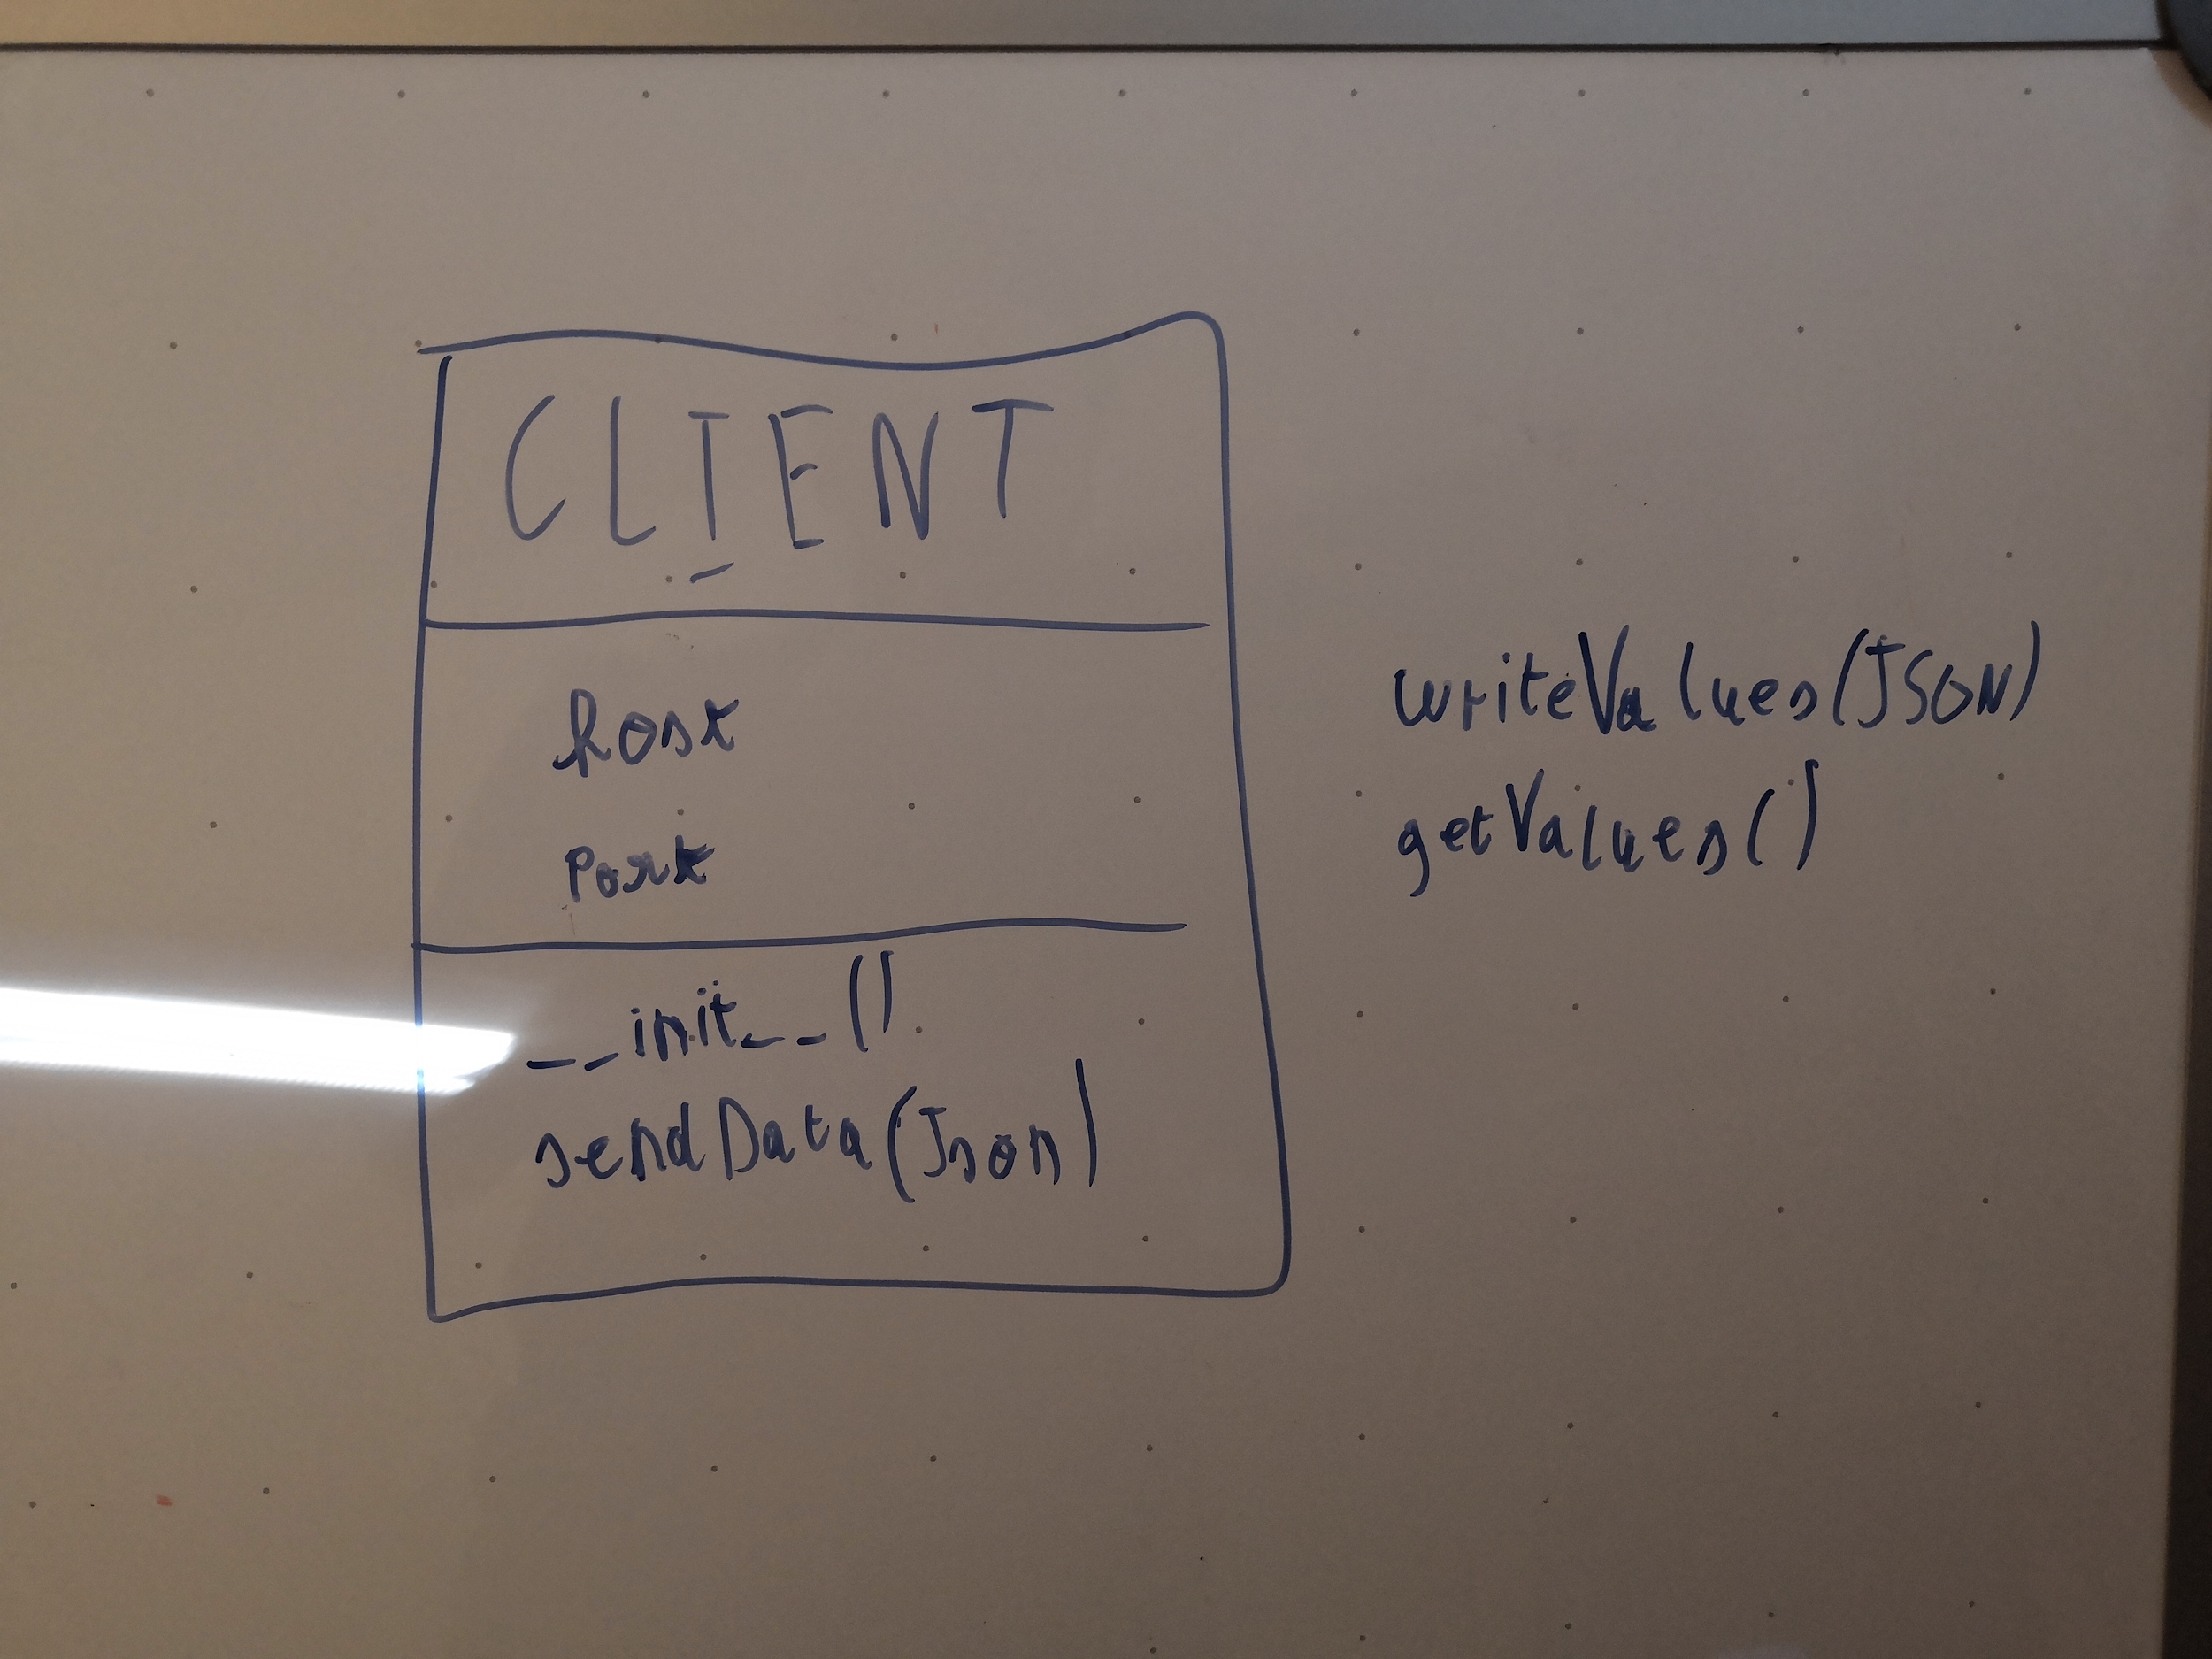 CLIENT
host
Port
__init__()
sendData(Json)
writeValues(JSON)
getValues()